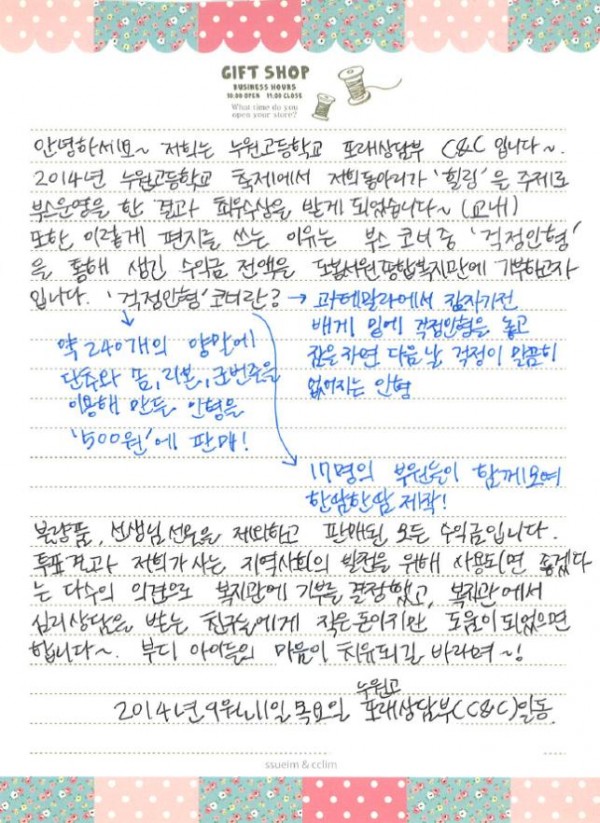 GIFT SHOP
BUSINESS HOURS
10:00 OPEN 19:00 CLOSE
What time do you
open your store?
안녕하세요~ 저희는 누원고등학교 또래상담부 C&C 입니다~.
2014년 누원고등학교 축제에서 저희동아리가 '힐링'을 주제로
부스운영을 한 결과 최우수상을 받게 되었습니다~ (교내)
또한 이렇게 편지를 쓰는 이유는 부스 코너 중 '걱정인형'
을 통해 생긴 수익금 전액을 도봉서원종합복지관에 기부하고자
입니다. '걱정인형' 코너란? → 과테말라에서 잠자기전
배게 밑에 걱정인형을 놓고
잠을 자면 다음날 걱정이 말끔히
없어지는 인형
약 240개의 양말에
단추와 솜, 리본, 군번줄을
이용해 만든 인형을
'500원'에 판매!
17명의 부원들이 함께모여
한땀한땀 제작!
불량품, 선생님선물을 제외하고 판매된 모든 수익금입니다.
투표결과 저희가 사는 지역사회의 발전을 위해 사용되면 좋겠다
는 다수의 의견으로 복지관에 기부를 결정했고, 복지관에서
심리상담을 받는 친구들에게 작은 돈이지만 도움이 되었으면
합니다~. 부디 아이들의 마음이 치유되길 바라며~!
누원고
2014년 9월 11일 목요일 또래상담부(C&C)일동.
ssueim & cclim